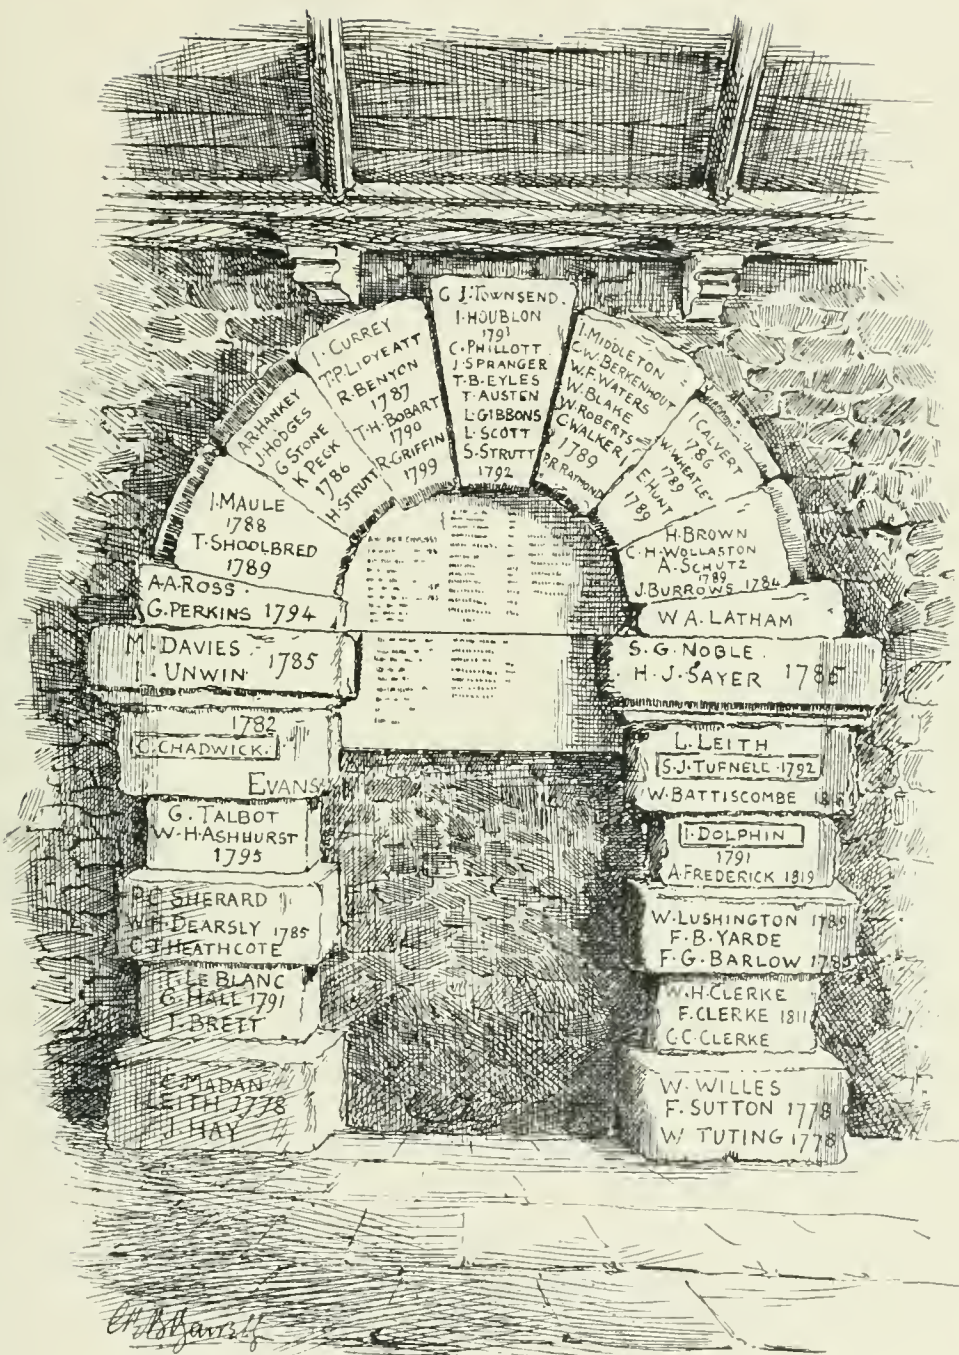 G J. TOWNSEND.
I. HOUBLON
1791
C. PHILLOTT
J. SPRANGER
T. B. EYLES
T. AUSTEN
L. GIBBONS
L. SCOTT
S. STRUTT
1792
I. CURREY
T. P. LIPYEATT
R. BENYON
1787
T. H. BOBART
1790
R. GRIFFIN
1799
A. R. HANKEY
J. HODGES
G. STONE
K. PECK
1786
H. STRUTT
I. MAULE
1788
T. SHOOLBRED
1789
A. A. ROSS.
G. PERKINS 1794
M. DAVIES
UNWIN. 1785
1782
C. CHADWICK.
EVANS
G. TALBOT
W. H. ASHHURST
1795
P. C. SHERARD
W. H. DEARSLY 1785
C. T. HEATHCOTE
T. LE BLANC
G. HALL 1791
J. BRETT
C. MADAN
LEITH 1778
J. HAY
I. MIDDLETON
C. W. BERKENHOUT
W. F. WATERS
W. BLAKE
W. ROBERTS
C. WALKER
1789
P. R. RAYMOND
I. CALVERT
1786
W. WHEATLEY
1789
E. HUNT
1789
H. BROWN
C. H. WOLLASTON
A. SCHUTZ
1789
J. BURROWS 1784
W A. LATHAM
S. G. NOBLE.
H. J. SAYER 1785
L. LEITH
S. J. TUFNELL. 1792
W. BATTISCOMBE
I. DOLPHIN
1791
A. FREDERICK 1819
W. LUSHINGTON 1789
F. B. YARDE
F. G. BARLOW 1785
W. H. CLERKE
F. CLERKE 1811
C. C. CLERKE
W. WILLES
F. SUTTON 1778
W TUTING 1778